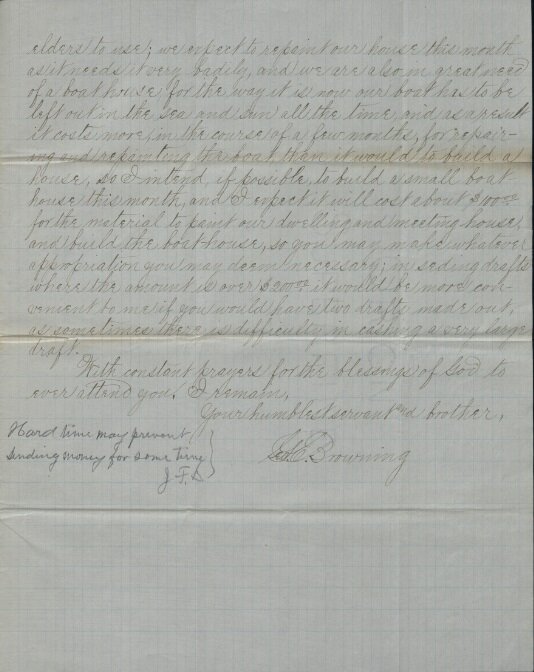 elders to use; we expect to repaint our house this month
as it needs it very badily, and we are also in great need
of a boat house for the way it is now our boat has to be
left out in the sea and sun all the time, and as a result
it costs more, in the course of a few months, for repair-
ing and repainting the boat than it would to build a
house, so I intend, if possible, to build a small boat
house this month, and I expect it will cost about $100.00
for the material to paint our dwelling and meeting house,
and build the boat-house, so you may make whatever
appropriation you may deem necessary; in seding drafts
where the amount is over $200.00 it would be more con-
venient to me if you would have two drafts made out,
as sometimes there is difficulty in cashing a very large
draft.
With constant prayers for the blessings of God to
ever attend you, I remain,
Your humblest servant and brother,
Geo. C. Browning
Hard time may prevent
sending money for some time
J. F.